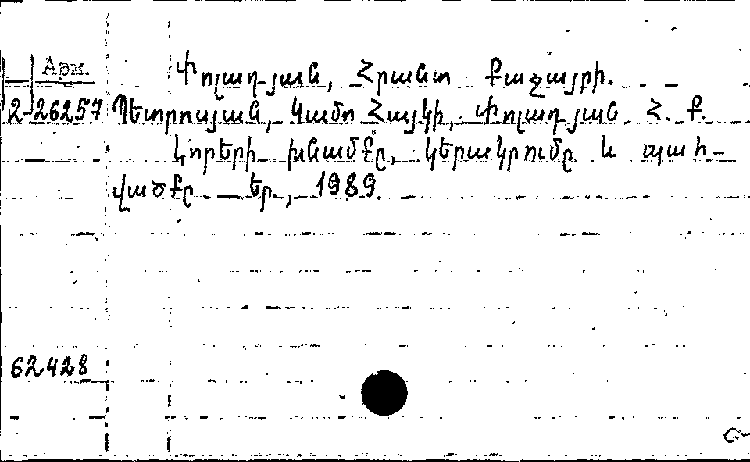 Арм. Փոլադյան, Հրանտ Քաջայրի.
2-26257 Պետրոսյան, Կամո Հայկի, Փոլադյան Հ. Ք.
Լորերի խնամքը, կերակրումը և պահ-
վածքը. Եր., 1989.
62428